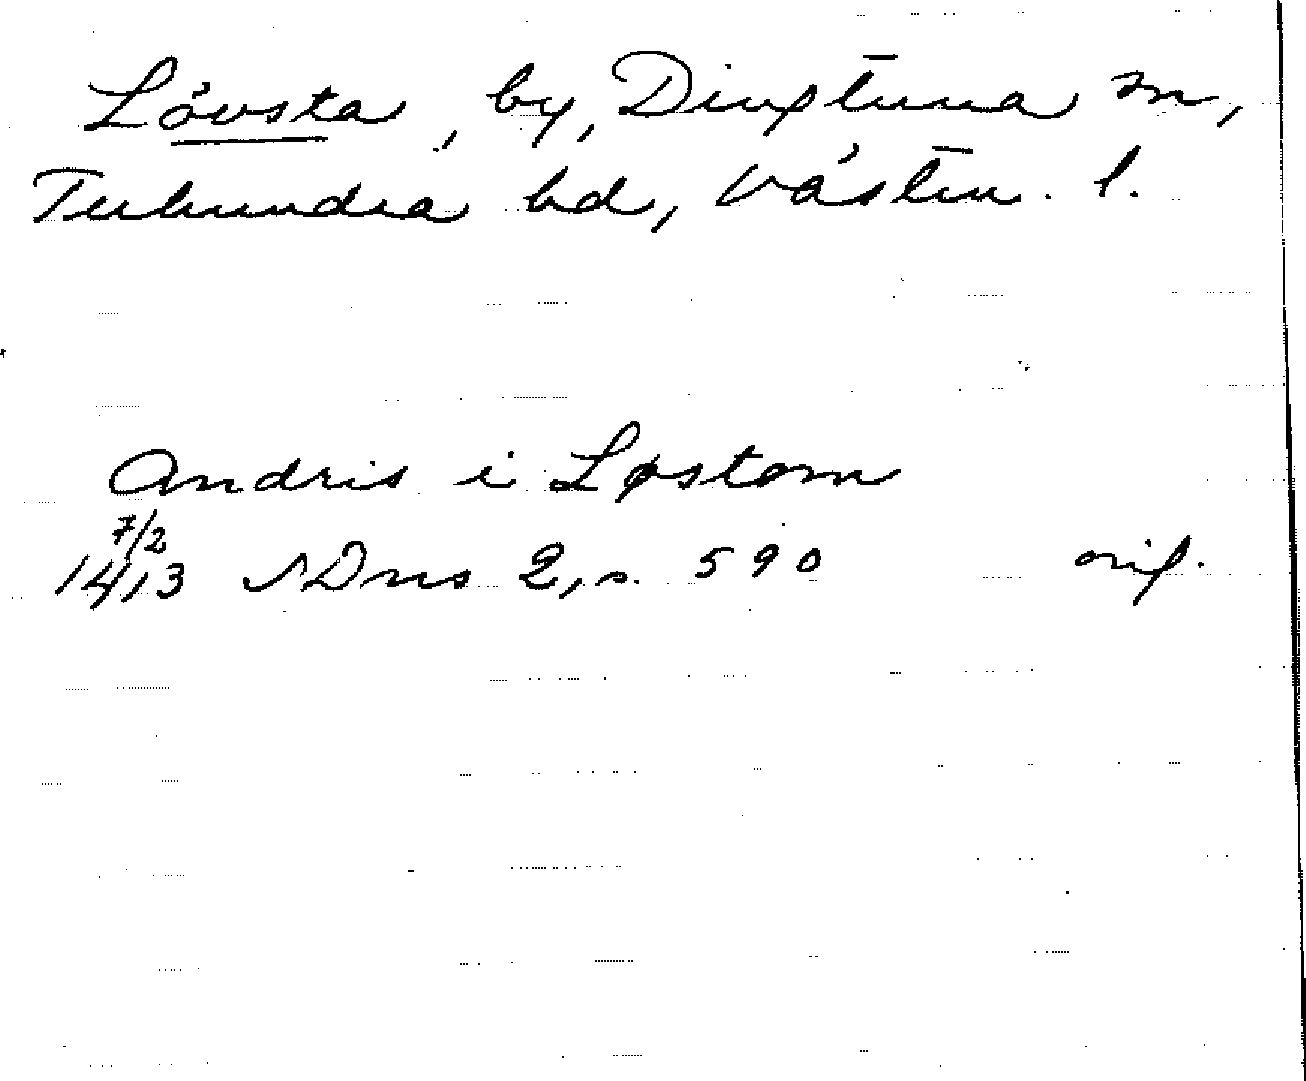 Lövsta, by, Dingtuna sn,
Tuhundra hd, Västm. l.
Andris i Løstom
7/2
1413 SDns 2, s. 590 orig.